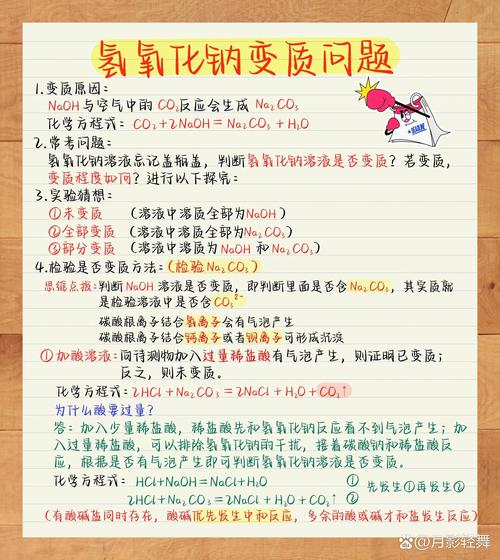 氢氧化钠变质问题
1.变质原因:
NaOH与空气中的CO₂反应会生成 Na₂CO₃
化学方程式: CO₂+2NaOH=Na₂CO₃+H₂O
2.常考问题:
氢氧化钠溶液忘记盖瓶盖,判断氢氧化钠溶液是否变质?若变质,
变质程度如何?进行以下探究:
3.实验猜想:
①未变质 (溶液中溶质全部为NaOH)
②全部变质 (溶液中溶质全部为Na₂CO₃)
③部分变质 (溶液中溶质为 NaOH 和Na₂CO₃)
4.检验是否变质方法:(检验Na₂CO₃)
思维点拨:判断NaOH 溶液是否变质,即判断里面是否含Na₂CO₃,其实质就
是检验溶液中是否含CO₃²⁻
碳酸根离子结合氢离子会有气泡产生
碳酸根离子结合钙离子或者钡离子可形成沉淀
①加酸溶液:向待测物加入过量稀盐酸有气泡产生,则证明已变质;
反之,则未变质。
化学方程式:2HCl+Na₂CO₃=2NaCl+H₂O+CO₂↑
为什么酸要过量?
答:加入少量稀盐酸,稀盐酸先和氢氧化钠反应看不到气泡产生;加
入过量稀盐酸,可以排除氢氧化钠的干扰,接着碳酸钠和稀盐酸反
应,根据是否有气泡产生即可判断氢氧化钠溶液是否变质。
化学方程式: HCl+NaOH=NaCl+H₂O ① 先发生①再发生②
2HCl+Na₂CO₃=2NaCl+H₂O+CO₂↑ ②
(有酸碱盐同时存在,酸碱优先发生中和反应,多余的酸或碱才和盐发生反应)
@月影轻舞